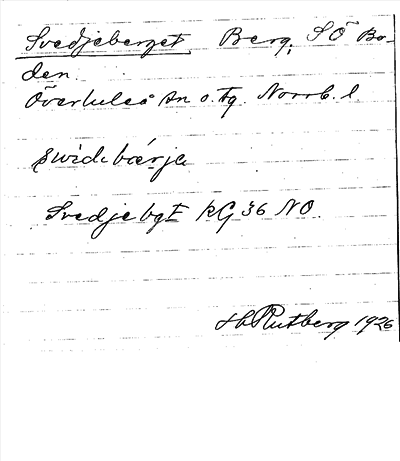 Svedjeberget Berg, SÖ Bo-
den.
Överluleå sn o. tg. Norrb. l.
swidːbærja
Svedjebgt KG 36 NO.
Hb Rutberg 1926